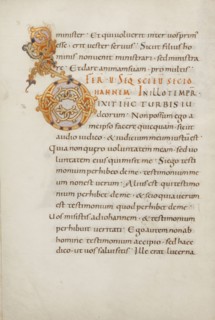 minister · Et qui voluerit inter vos primus
esse · erit vester servus · Sicut filius ho
minis non venit ministrari · sed ministra
re · Et dare animam suam · pro multis ·
FER · V · SEQ SCI EV SEC IO
HANNEM · IN ILLO TEMPR
DIXIT IHC TURBIS IU
deorum · Non possum ego a
me ipso facere quicquam · sicut
audio iudico · & iudicium meum iustu est
Quia non quero voluntatem meam · sed vo
luntatem eius qui misit me · Si ego testi
monium perhibeo de me · testimonium me
um non est verum · Alius est qui testimo
nium perhibet de me · & scio quia verum
est testimonium quod perhibet de me ·
Vos misistis ad iohannem · & testimonium
perhibuit veritati · Ego autem non ab
homine testimonium accipio · sed haec
dico · ut vos salvi sitis · Ille erat lucerna